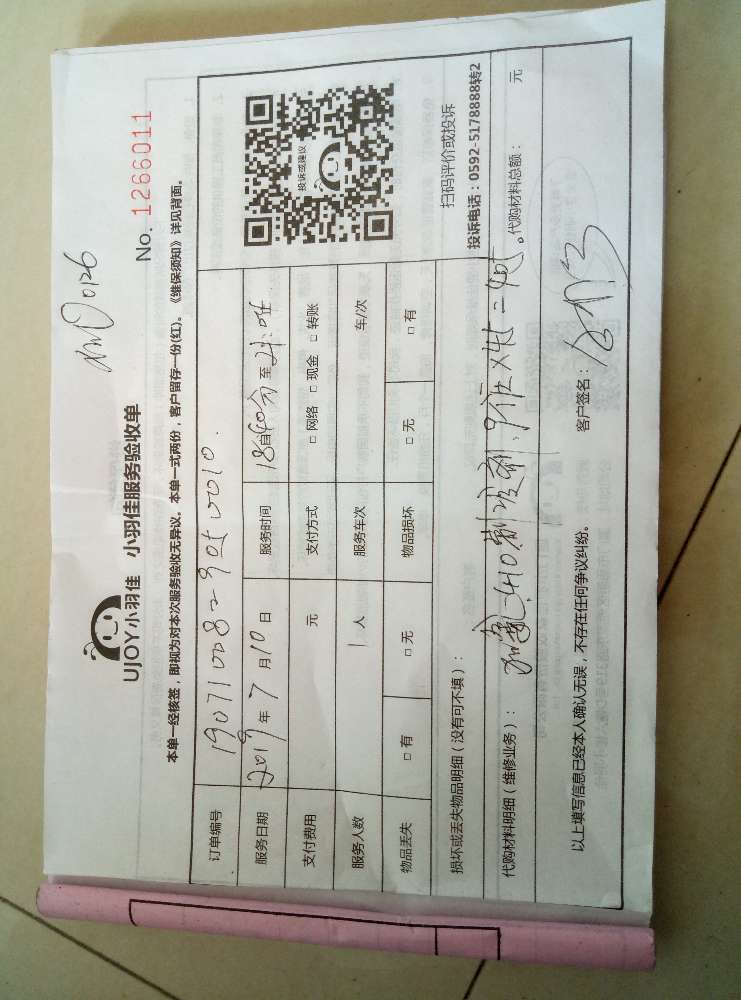 UJOY小羽佳 小羽佳服务验收单
No. 1266011
本单一经核签，即视为对本次服务验收无异议。本单一式两份，客户留存一份(红)。《维保须知》详见背面。
订单编号
服务日期 2019年7月10日 服务时间 18自40分至21:
支付费用 元 支付方式 □ 网络 □ 现金 □ 转账
服务人数 1 人 服务车次 车/次
物品丢失 □ 有 □ 无 物品损坏 □ 无 □ 有
投诉或建议
扫码评价或投诉
投诉电话：0592-5178888转2
损坏或丢失物品明细（没有可不填）：
代购材料明细（维修业务）： 410制 代购材料总额： 元
以上填写信息已经本人确认无误，不存在任何争议纠纷。 客户签名：